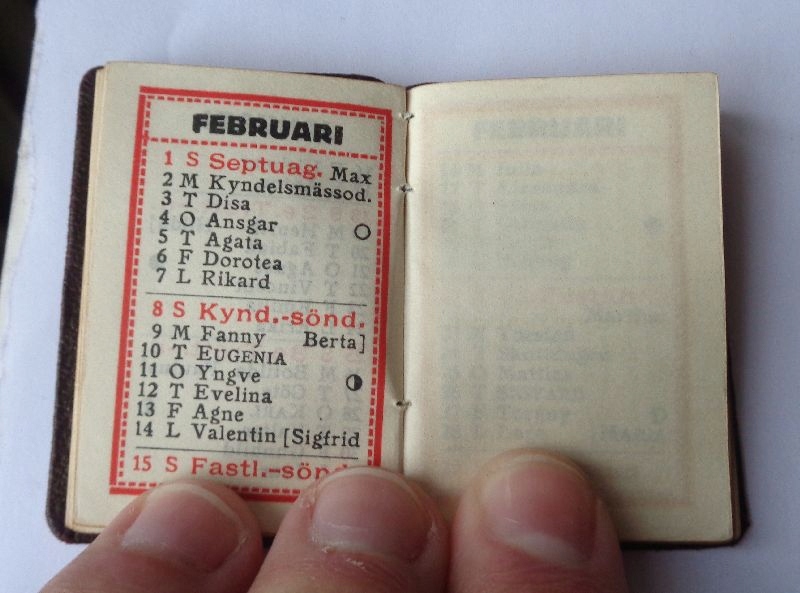 FEBRUARI
1 S Septuag. Max
2 M Kyndelsmässod.
3 T Disa
4 O Ansgar
5 T Agata
6 F Dorotea
7 L Rikard
8 S Kynd.-sönd.
9 M Fanny Berta]
10 T EUGENIA
11 O Yngve
12 T Evelina
13 F Agne
14 L Valentin [Sigfrid
15 S Fastl.-sönd.